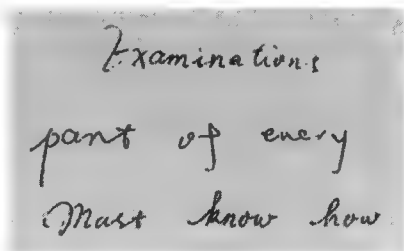 Examinations
part of every
Must know how